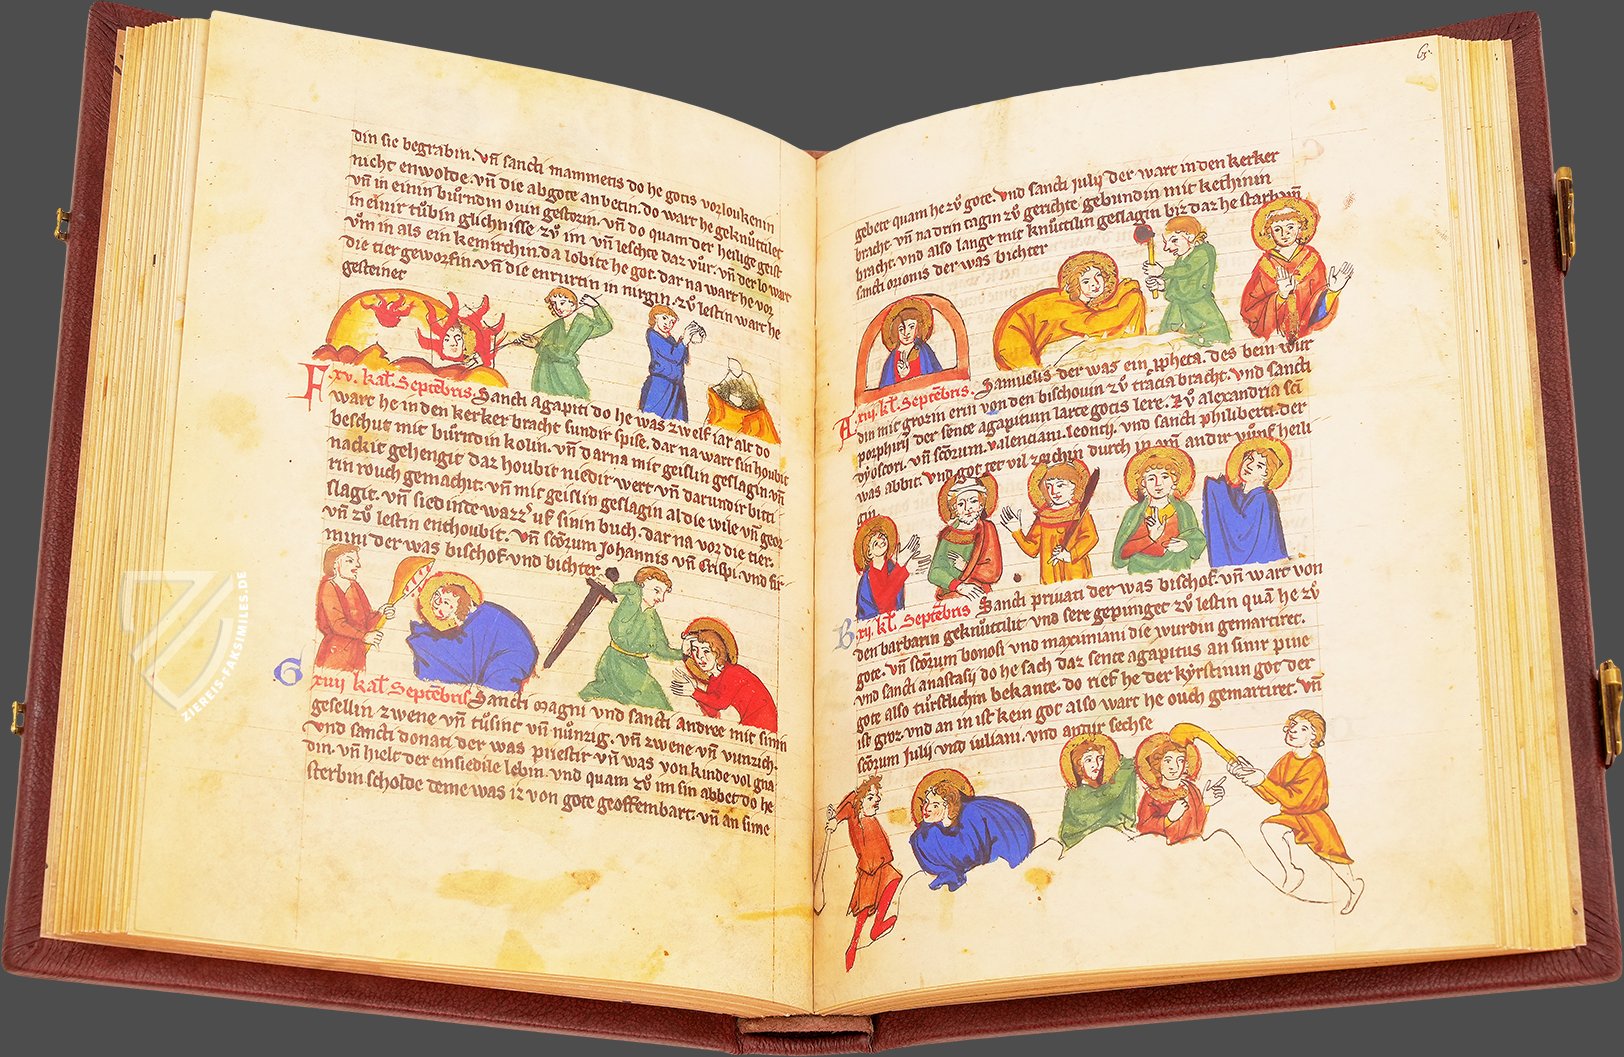 din sie begrabin. vn̄ sancti mammetis do he gotis vorloukenin
nicht enwolde. vn̄ die abgote anbetin. do wart he geknuttilet
vn̄ in einin burndin ouin gestozin. vn̄ do quam der heilge geist
in einir tubin glichnisse zu im vn̄ leschte daz vur. vn̄ der lo wart
vm in als ein kemirchin. da lobite he got. dar na wart he vor
die tier geworfin. vn̄ die enrurtin in nirgin. zu lestin wart he
gesteinet
F xv. kal. Septēbris. Sancti agapiti do he was zwelf iar alt do
wart he in den kerker bracht sundir spise. dar na wart sin houbit
beschut mit burndin kolin. vn̄ darna mit geislin geslagin. vn̄
nackit gehengit daz houbit niedir wert vn̄ darundir bitti
rin rouch gemachit. vn̄ mit geislin geslagin al die wile vn̄ geor
slagit. vn̄ siedinde wazz uf sinin buch. dar na vor die tier.
vn̄ zu lestin enthoubit. vn̄ scōrum Johannis vn̄ Crispi. vnd fir
mini der was bischof vnd bichter
G xviij kal. Septēbris Sancti Magni vnd sancti andree mit sinin
gesellin zwene vn̄ tusint vn̄ nunzig. vn̄ zwene vn̄ vunzich.
vnd sancti donati der was priestir vn̄ was von kinde vol gna
din. vn̄ hielt der einsiedile lebin. vnd quam zu im sin abbet do he
sterbin scholde deme was iz von gote geoffembart. vn̄ an sime
65.
gebete quam he zu gote. vnd sancti Julij der wart in den kerker
bracht. vn̄ na drin tagin zu gerichte gebundin mit kethinin
bracht. vnd also lange mit knuttilin geslagin biz daz he starb. vn̄
sancti oionis der was bichter
A xiij. kl. Septēbris. Samuelis der was ein ppheta. des bein wur
din mit grozin erin von den bischouin zu tracia bracht. vnd sancti
porphirij der sente agapitum larte gotis lere. zu alexandria scī
dyoscori. vn̄ scōrum. valenciani. leontij. vnd sancti philiberti. der
was abbit. vnd got tet vil zeichin durch in vn̄ andir vunf heili
gin
B xij. kl. Septēbris Sancti priuati der was bischof. vn̄ wart von
den barbarin geknuttilit vnd sere gepiniget zu lestin quā he zu
gote. vn̄ scōrum bonosi vnd maximiani die wurdin gemartiret.
vnd sancti anastasij do he sach daz sente agapitus an sinir pine
gote also turstlichin bekante. do rief he der kyrstinin got der
ist groz. vnd an in ist kein got also wart he ouch gemartiret. vn̄
scōrum Julij vnd iuliani. vnd andir sechse
ZIEREIS-FAKSIMILES.DE